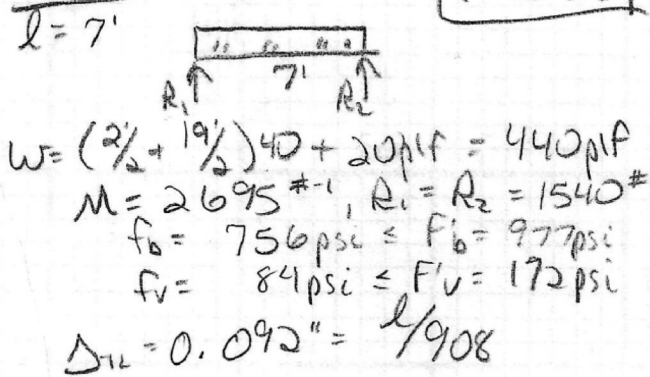 l = 7'
7'
R₁ R₂
W= (2'/2 + 19'/2)40 + 20plf = 440plf
M= 2695 #-', R₁ = R₂ = 1540#
fb= 756psi ≤ F'b= 977psi
fv= 84psi ≤ F'v= 172psi
ΔTL = 0.092" = l/908